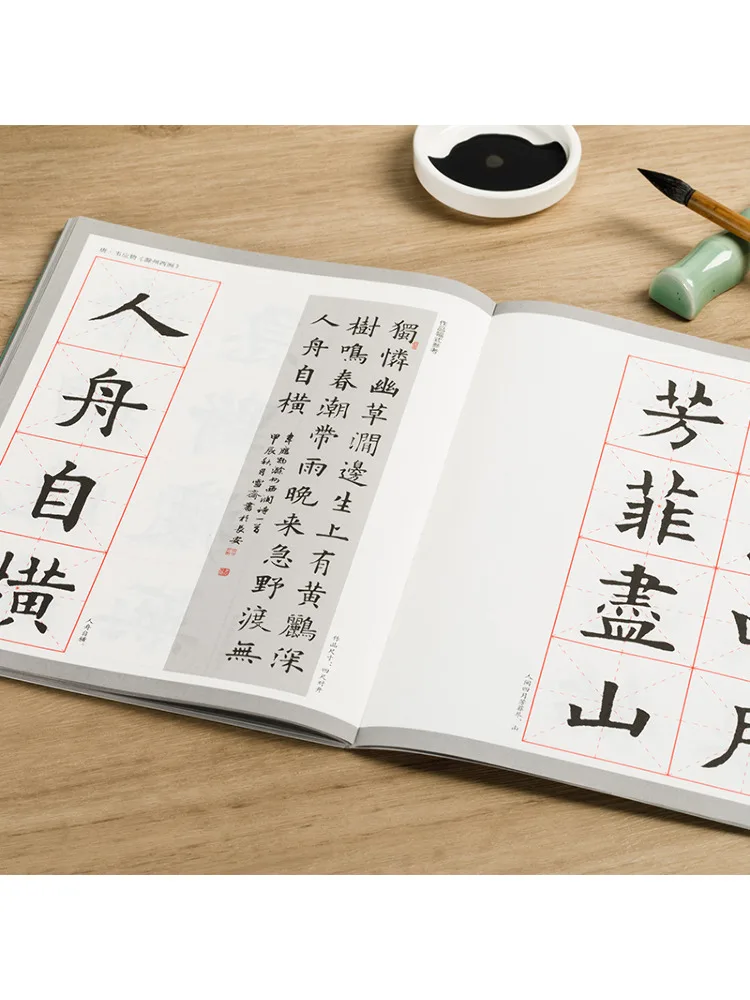 唐·韦应物《滁州西涧》
人
舟
自
橫
人舟自横。
作品幅式参考
獨憐幽草澗邊生上有黃鸝深
樹鳴春潮帶雨晚来急野渡無
人舟自橫
韋應物滁州西澗詩一首
甲辰秋月雪齋書於長安
作品尺寸：四尺对开
芳
菲
盡
山
人间四月芳菲尽，山